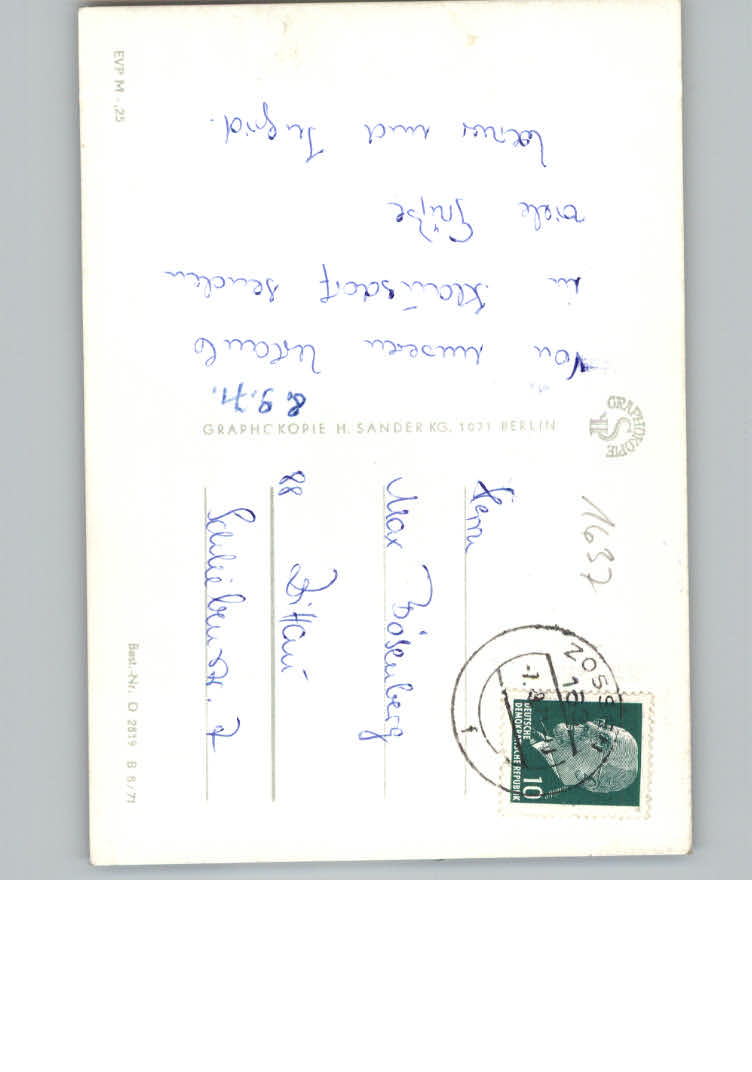 8.9.71.
Von unseren Urlaub
in Klausdorf senden
viele Grüße
und Ingrid.
EVP M -,25
GRAPHOKOPIE H. SANDER KG. 1071 BERLIN
GRAPHOKOPIE
HS
1637
ZOSSEN
f
DEUTSCHE
DEMOKRATISCHE REPUBLIK
10
Herrn
Max Bösenberg
88 Zittau
Schliebenstr. 7
Best.-Nr. D 2819 B 8/71